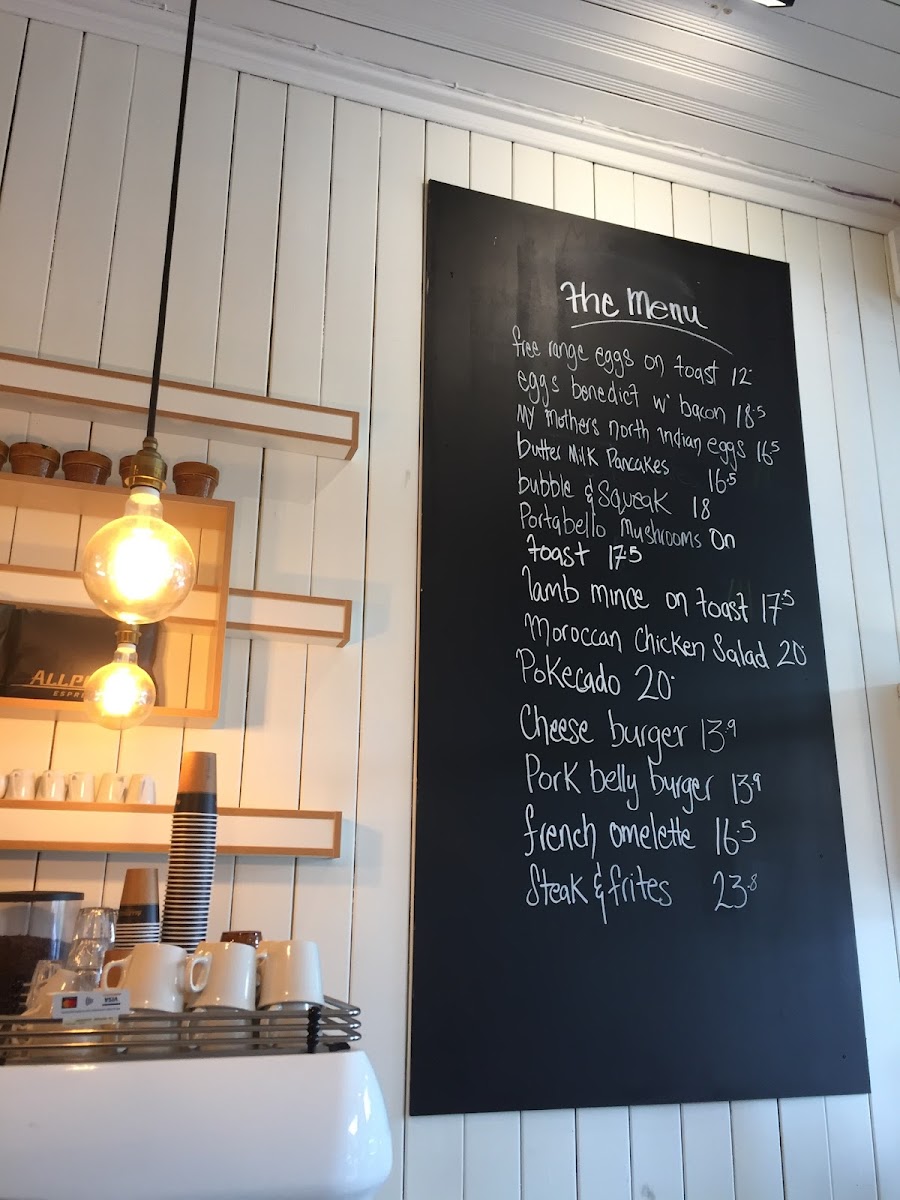 the Menu
free range eggs on toast 12·
eggs benedict w' bacon 18·5
My Mothers north indian eggs 16·5
butter Milk Pancakes 16·5
bubble & Squeak 18
Portabello Mushrooms On
toast 17·5
lamb mince on toast 17·5
Moroccan Chicken Salad 20·
Pokecado 20·
Cheese burger 13·9
Pork belly burger 13·9
french omelette 16·5
Steak & frites 23·8
ALLP
ESPRE
VISA